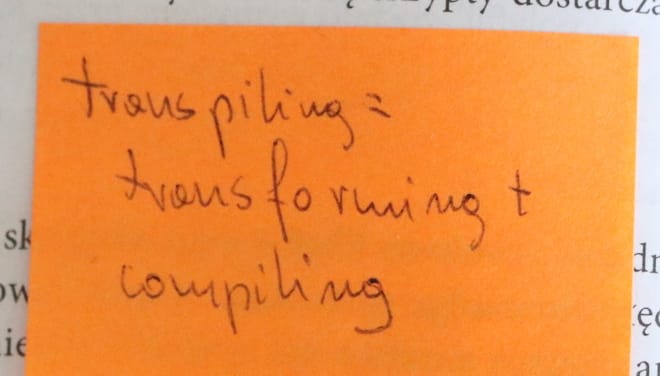 dostarcza
transpiling =
transforming +
compiling
sk